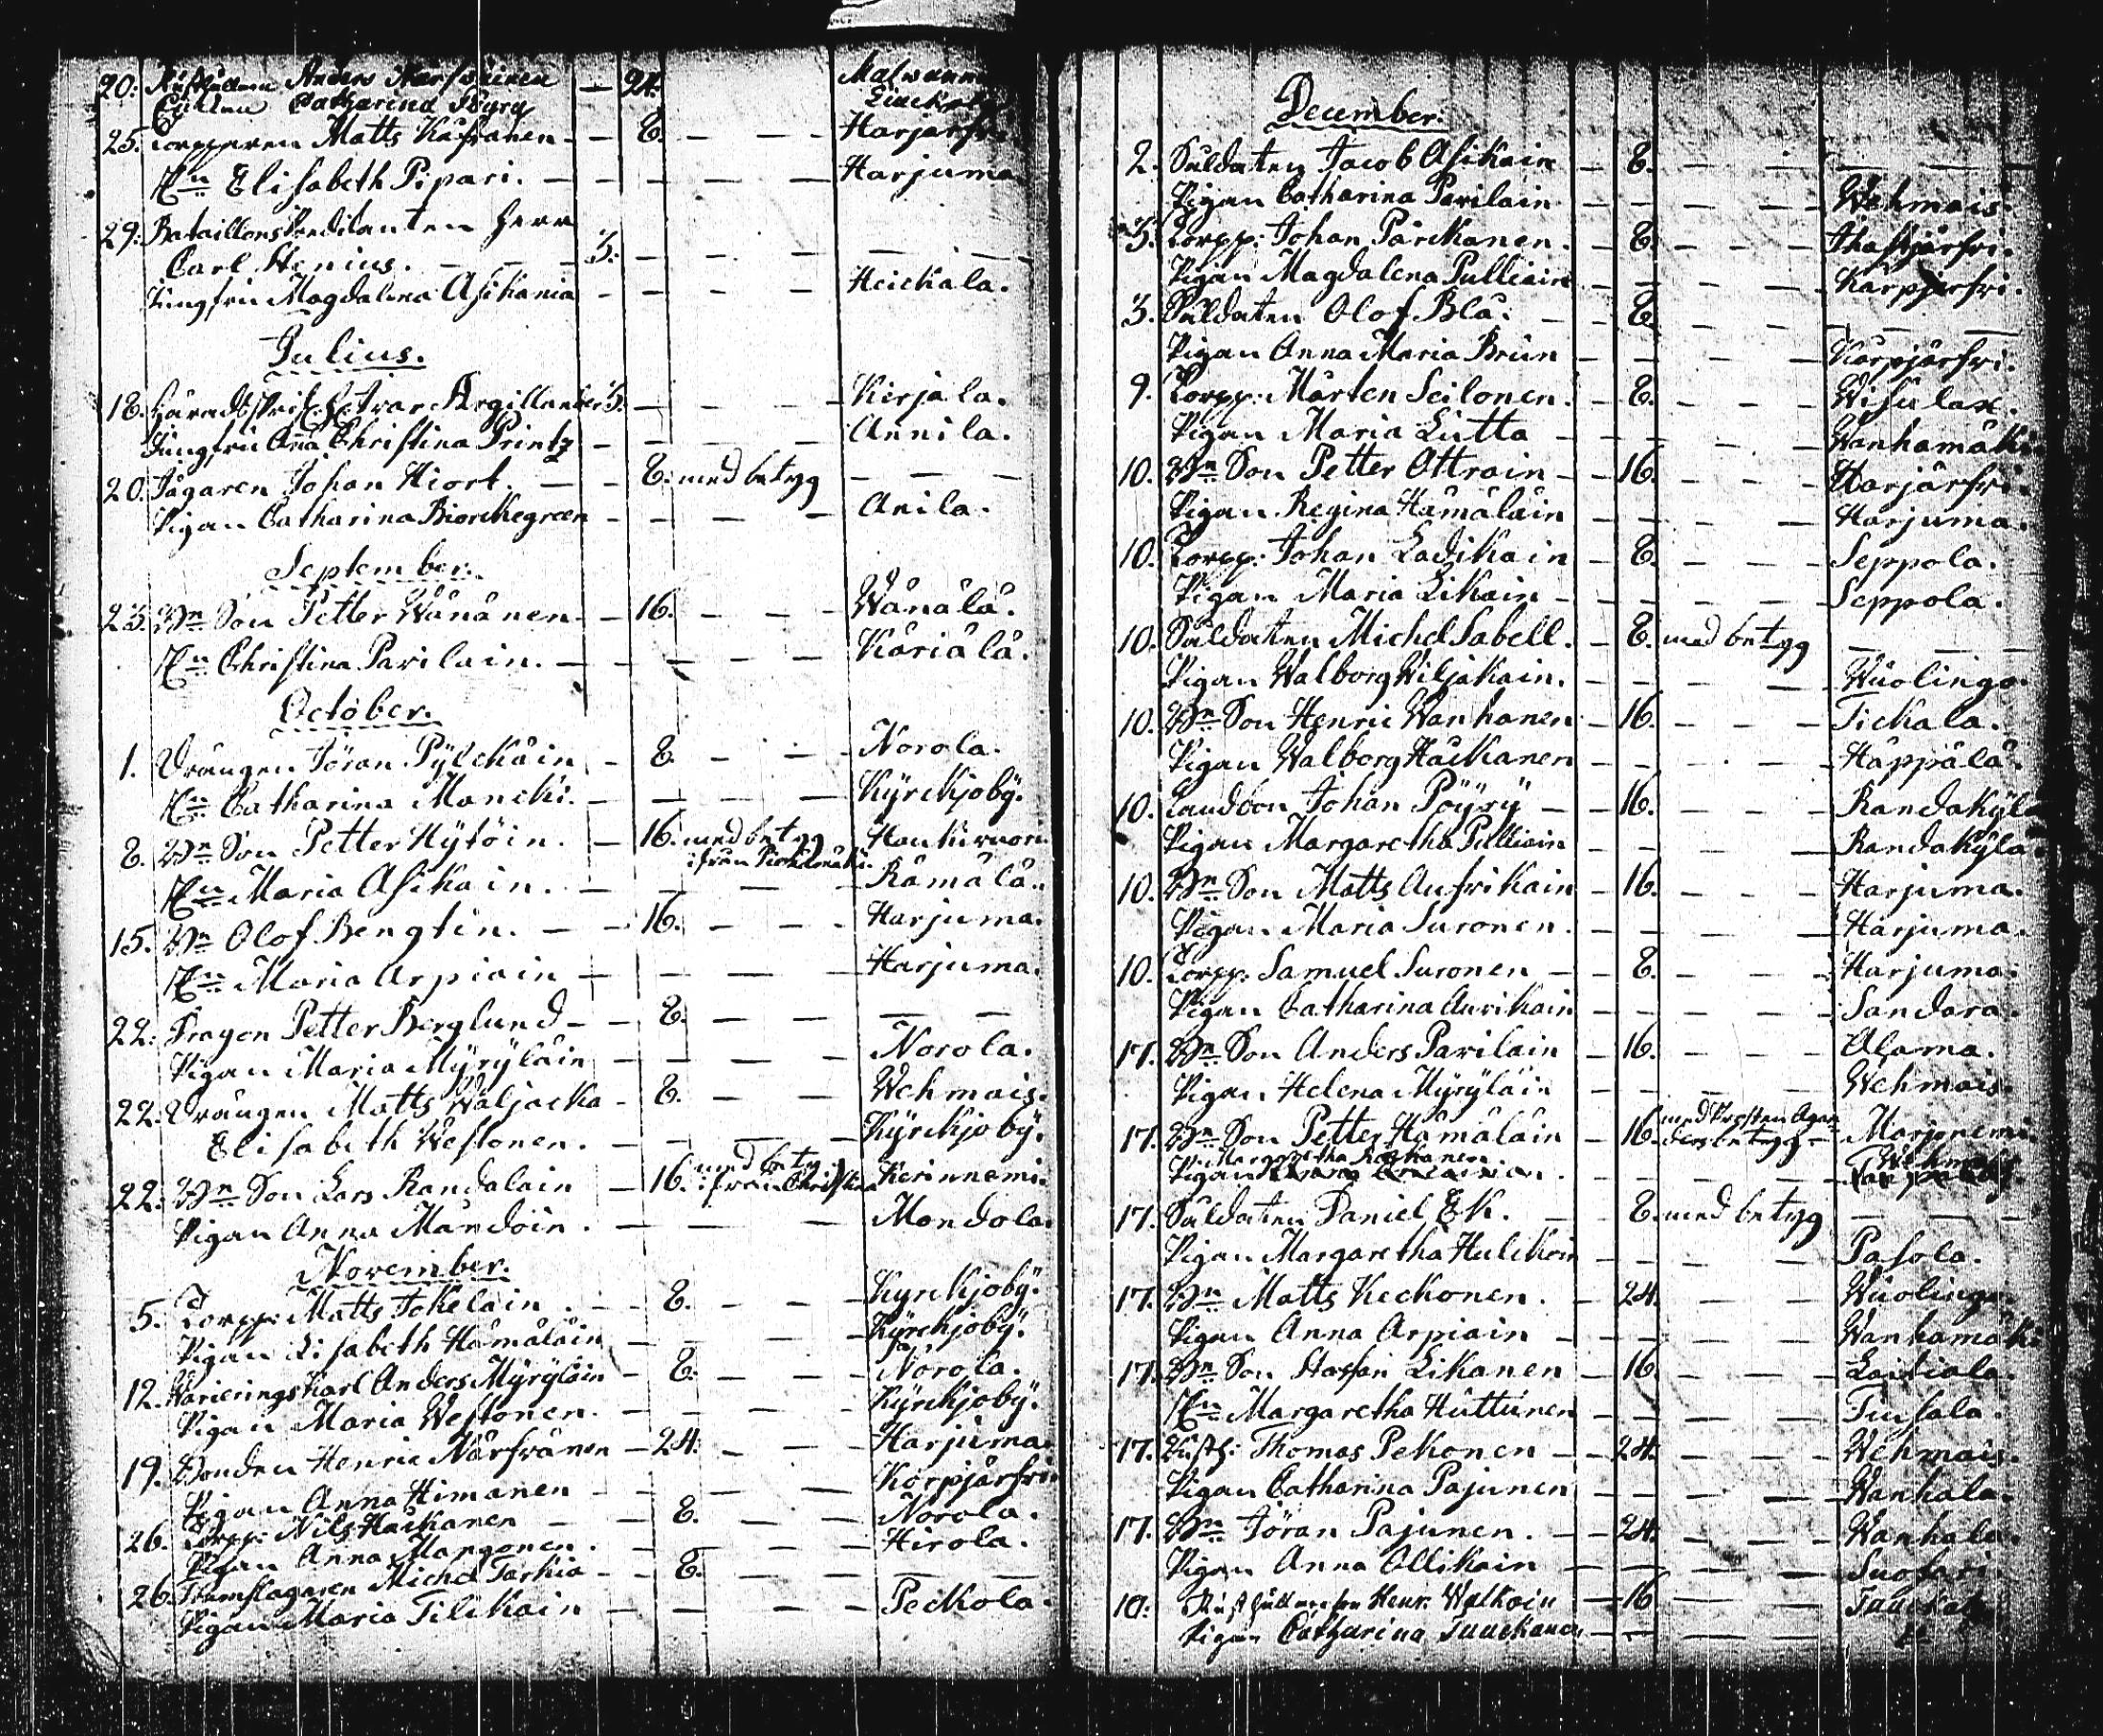 20. Anders Catharina Pöyry — 24.
25. Torpparen Matts — 8. — — — Harjärfvi
Pn Elisabeth Pipari. — — — — — Harjuma
29. Bataillons Herr
Carl Stenius. — — — 3. — — — —
Jungfru Magdalena Asikania — — — — Heickala.
Julius.
18. Argillander 3. — — — Kirjala.
Jungfru Anna Christina Printz — — — — Annila.
20. Jägaren Johan Hiort. — — 8. med betyg — — —
Pigan Catharina Biorckegreen — — — — Anila.
September.
23. Bn Son Petter Wänänen — 16. — — — Wänälä.
Pn Christina Parilain. — — — — — Käriälä.
October.
1. Drängen Jöran Pylckäin — 8. — — — Norola.
Pn Catharina Mancki. — — — — — Kyrckjoby.
8. Bn Son Petter Hytöin. — 16. med betyg
ifrån
Pn Maria Asikain. — — — — — Rämälä.
15. Bn Olof Bengtin. — — 16. — — — Harjuma.
Pn Maria Arpiain — — — — — Harjuma.
22. Dragon Petter Berglund — — 8. — — — —
Pigan Maria Myryläin — — — — Norola.
22. Drängen Matts Waljacka — 8. — — — Wehmais.
Elisabeth Westonen. — — — — — Kyrckjoby.
22. Bn Son Lars Randalain — 16. med betyg ifrån Christina Kerinnemi.
Pigan Anna Mändöin. — — — — Mondola.
November.
5. Torpp: Matts Tokelain. — — 8. — — — Kyrckjoby.
Pigan Lisabeth Hämäläin — — — — Kyrckjoby.
12. Karl Anders Myryläin — 8. — — — Norola.
Pigan Maria Westonen. — — — — Kyrckjoby.
19. Bonden Henric Närfvänen — 24. — — — Harjuma.
Pigan Anna Himanen — — — — Korpjärfvi
26. Torpp: Nils Häckanen — — 8. — — — Norola.
Pigan Anna Manzonen. — — — — Hirola.
26. Trumslagaren Michel Tarkia — — 8. — — — —
Pigan Maria Tilikain — — — — Peckola.
December.
2. Soldaten Jacob Asikain — 8. — — — —
Pigan Catharina Parilain — — — — Wehmais.
3. Torpp: Johan Pärckanen. — 8. — — —
Pigan Magdalena Pulliain — — — — Karpjärfvi.
3. Soldaten Olof Blå. — — 8. — — — —
Pigan Anna Maria Brun — — — — Karpjärfvi.
9. Torpp: Mårten Seilonen. — 8. — — — Wisulax.
Pigan Maria Lutta — — — — Wanhamäki.
10. Bn Son Petter Ottrain — 16. — — — Harjärfvi.
Pigan Regina Hämäläin — — — — Harjuma.
10. Torpp: Johan Ladikain — 8. — — — Seppola.
Pigan Maria Likain — — — — Seppola.
10. Soldaten Michel Sabell. — 8. med betyg — —
Pigan Walborg Wiljakain. — — — — Wuolingo.
10. Bn Son Henric Wanhanen — 16. — — — Tickala.
Pigan Walborg Häckanen — — — — Häppälä.
10. Landbon Johan Pöyry — — 16. — — — Randakylä
Pigan Margaretha Pulliain — — — — Randakylä.
10. Bn Son Matts Aufrikain — 16. — — — Harjuma.
Pigan Maria Suronen. — — — — Harjuma.
10. Torpp: Samuel Suronen — — 8. — — — Harjuma.
Pigan Catharina Aurikain — — — — Sandara.
17. Bn Son Anders Parilain — 16. — — — Alama.
Pigan Helena Myryläin — — — — Wehmais.
17. Bn Son Petter Hämäläin — 16. betyg — Marjonemi
Margaretha
Pigan
17. Soldaten Daniel Ek. — — 8. med betyg — —
Pigan Margaretha Hulckoin — — — — Pasola.
17. Bn Matts Keckonen. — 24. — — — Wuolingo.
Pigan Anna Arpiain — — — — Wanhamäki
17. Bn Son Staffan Likanen — 16. — — — Laitiala.
Pn Margaretha Huttunen — — — — Tiusala.
17. Rusth: Thomas Pekonen — — 24. — — — Wehmais.
Pigan Catharina Pajunen — — — — Wanhala.
17. Bn Jöran Pajunen. — — 24. — — — Wanhala.
Pigan Anna Ollikain — — — — Suosari.
10. Henr. Walkoin — 16 — —
Pigan Catharina — — — —